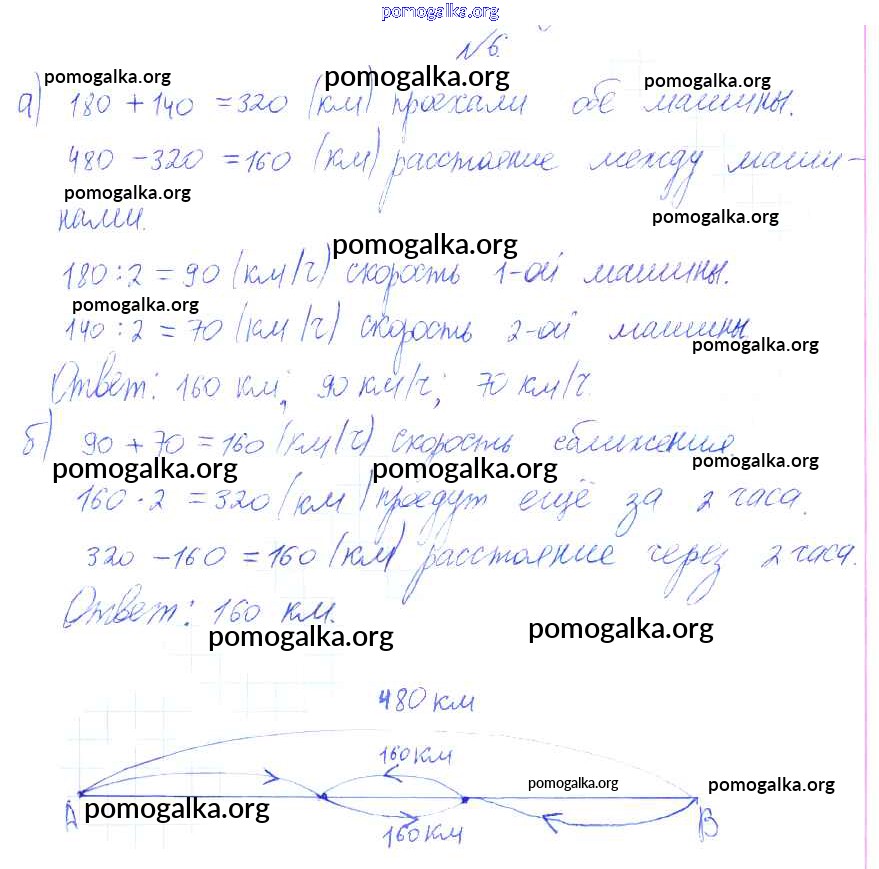 pomogalka.org
№6.
pomogalka.org pomogalka.org pomogalka.org
а) 180 + 140 = 320 (км) проехали обе машины.
480 - 320 = 160 (км) расстояние между маши-
pomogalka.org
нами.
pomogalka.org
pomogalka.org
180 : 2 = 90 (км/ч) скорость 1-ой машины.
pomogalka.org
140 : 2 = 70 (км/ч) скорость 2-ой машины
pomogalka.org
Ответ: 160 км; 90 км/ч; 70 км/ч.
б) 90 + 70 = 160 (км/ч) скорость сближения.
pomogalka.org pomogalka.org pomogalka.org
160 · 2 = 320 (км) проедут ещё за 2 часа.
320 - 160 = 160 (км) расстояние через 2 часа.
Ответ: 160 км.
pomogalka.org pomogalka.org
480 км
160 км
pomogalka.org pomogalka.org
А pomogalka.org В
160 км